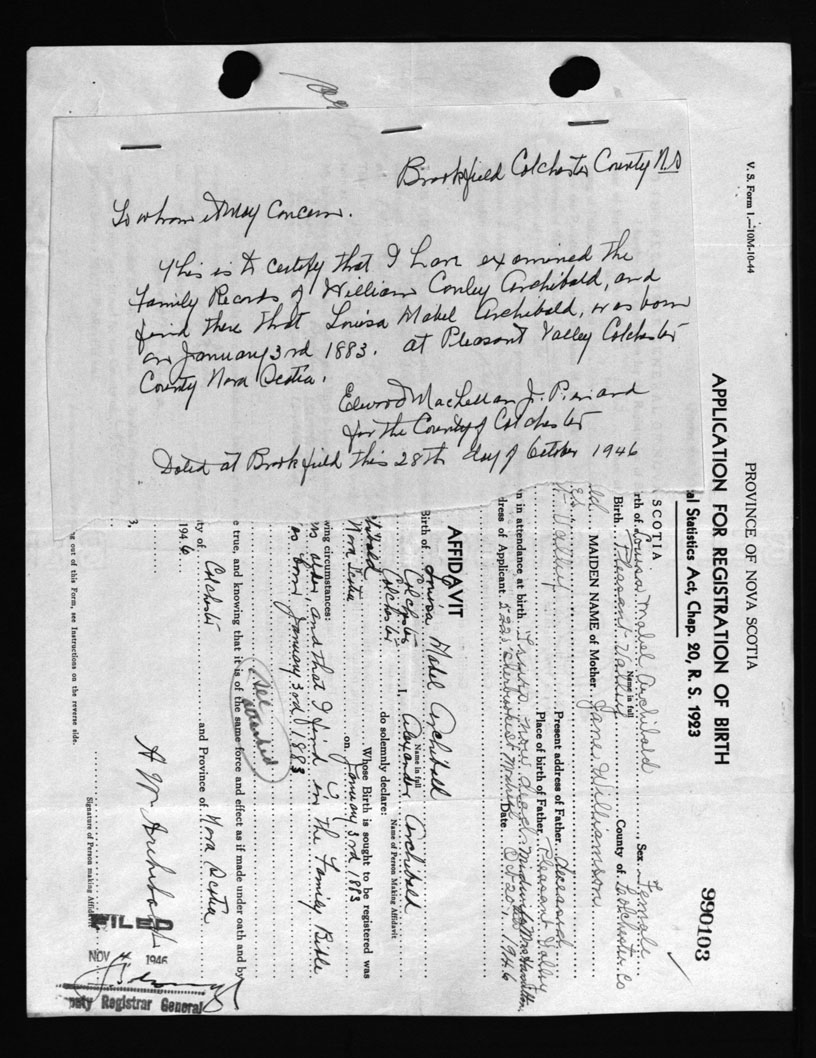 Brookfield Colchester County N.S
To whom it May Concern.
This is to certify that I have examined the
Family Records of William Conley Archibald, and
find there that Louisa Mabel Archibald, was born
on January 3rd 1883. at Pleasant Valley Colchester
County Nova Scotia.
Elwood MacLellan J. P. in and
for the County of Colchester
Dated at Brookfield this 28th day of October 1946
V. S. Form 1.—10M-10-44
PROVINCE OF NOVA SCOTIA
APPLICATION FOR REGISTRATION OF BIRTH
al Statistics Act, Chap. 20, R. S. 1923
990103
SCOTIA
rth of Louisa Mabel Archibald Sex Female
Name in full
Birth Pleasant Valley County of Colchester Co
MAIDEN NAME of Mother. Jane Williamson
Present address of Father. deceased
Valley Place of birth of Father. Pleasant Valley
n in attendance at birth
dress of Applicant Date Oct 20 1946
AFFIDAVIT
Birth of Louisa Mabel Archibald
Name in full
Colchester I, Alexander Archibald
Name of Person Making Affidavit
Colchester do solemnly declare:
Whose Birth is sought to be registered was
Nova Scotia on January 3rd 1883
wing circumstances:
older, and that I find in the Family Bible
born January 3rd 1883
See attached
e true, and knowing that it is of the same force and effect as if made under oath and by
ty of Colchester and Province of Nova Scotia
1946
A W Archibald
Signature of Person making Affidavit
ng out of this Form, see Instructions on the reverse side.
FILED
NOV 4 1946
puty Registrar General